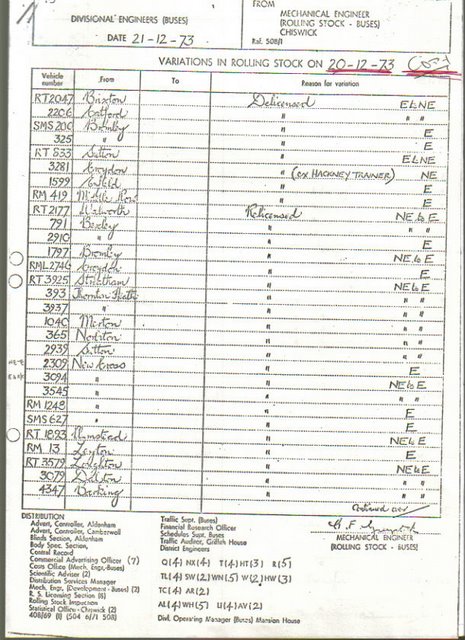 DIVISIONAL ENGINEERS (BUSES)
DATE 21-12-73
FROM
MECHANICAL ENGINEER
(ROLLING STOCK - BUSES)
CHISWICK
Ref. 508/1
VARIATIONS IN ROLLING STOCK ON 20-12-73
Vehicle number From To Reason for variation
RT2047 Brixton Delicensed ELNE
2206 Catford " " "
SMS 206 Bromley " E
325 " " E
RT 633 Sutton " ELNE
3281 Croydon " (ex HACKNEY TRAINER) NE
1599 Enfield " E
RM 419 Middle Row " E
RT 2177 Walworth Relicensed NE to E
791 Bexley " " "
2910 " " E
1797 Bromley " NE to E
RML2746 Croydon " E
RT 3925 Streatham " NE to E
393 Thornton Heath " " "
3937 " " " "
1040 Merton " " "
365 Norbiton " " "
2939 Sutton " " "
2309 New Cross " " "
3094 " " E
3545 " " NE to E
RM 1248 " " E
SMS 627 " " E
RT 1823 Plumstead " NE to E
RM 13 Leyton " E
RT 3579 Loughton " NE to E
3079 Dalston " " "
4347 Barking " " "
Continued over
DISTRIBUTION
Advert. Controller, Aldenham
Advert. Controller, Camberwell
Blinds Section, Aldenham
Body Spec. Section,
Central Record
Commercial Advertising Officer (7)
Costs Office (Mech. Engs.-Buses)
Scientific Adviser (2)
Distribution Services Manager
Mech. Engr. (Development - Buses) (2)
R. S. Licensing Section (6)
Rolling Stock Inspection
Statistical Office - Chiswick (2)
408/69 (1) (504 6/1 508)
Traffic Supt. (Buses)
Financial Research Officer
Schedules Supt. Buses
Traffic Auditor, Griffith House
District Engineers
Q(4) NX(4) T(4) HT(3) R(5)
TL(4) SW(2) WN(5) W(2) HW(3)
TC(4) AR(2)
AL(4) WH(5) U(4) AV(2)
Divl. Operating Manager (Buses) Mansion House
MECHANICAL ENGINEER
(ROLLING STOCK - BUSES)